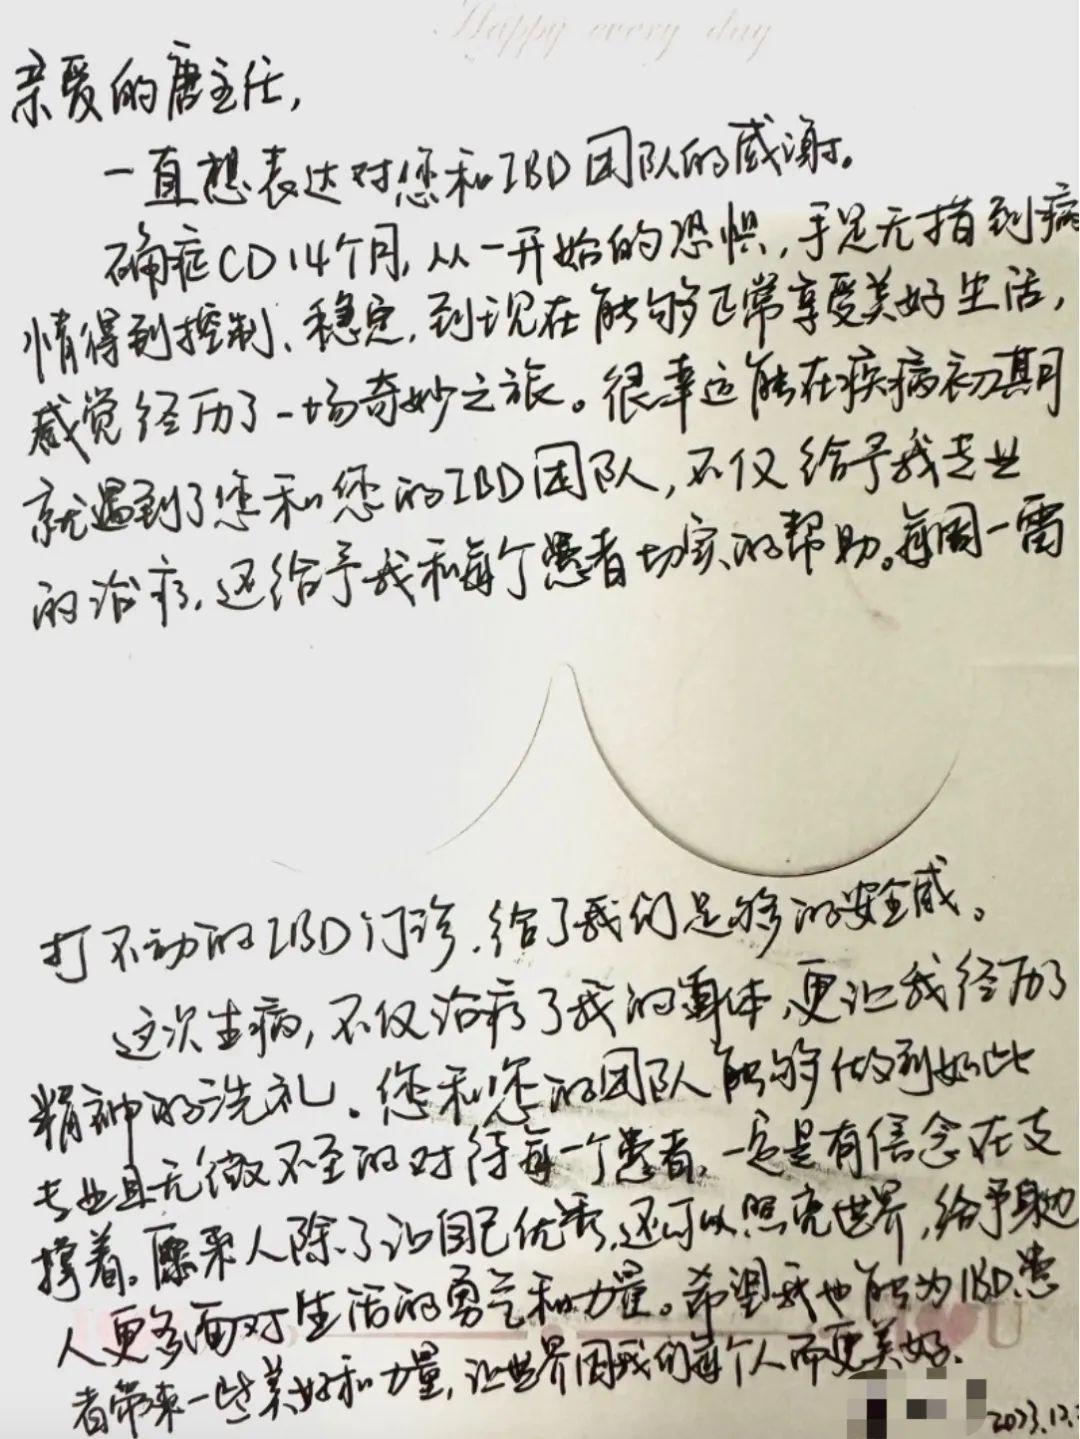 Happy every day
亲爱的唐主任,
一直想表达对您和IBD团队的感谢。
确症CD14个月,从一开始的恐惧,手足无措到病
情得到控制、稳定,到现在能够正常享受美好生活,
感觉经历了一场奇妙之旅。很幸运能在疾病初期
就遇到了您和您的IBD团队,不仅给予我专业
的治疗,还给予我和每个患者切实的帮助。每周一雷
打不动的IBD门诊,给了我们足够的安全感。
这次生病,不仅治疗了我的身体,更让我经历了
精神的洗礼。您和您的团队能够做到如此
专业且无微不至的对待每一个患者,一定是有信念在支
撑着。原来人除了让自己优秀,还可以照亮世界,给予身边
人更多面对生活的勇气和力量。希望我也能为IBD患
者带来一些美好和力量,让世界因我们每个人而更美好.
2023.12.